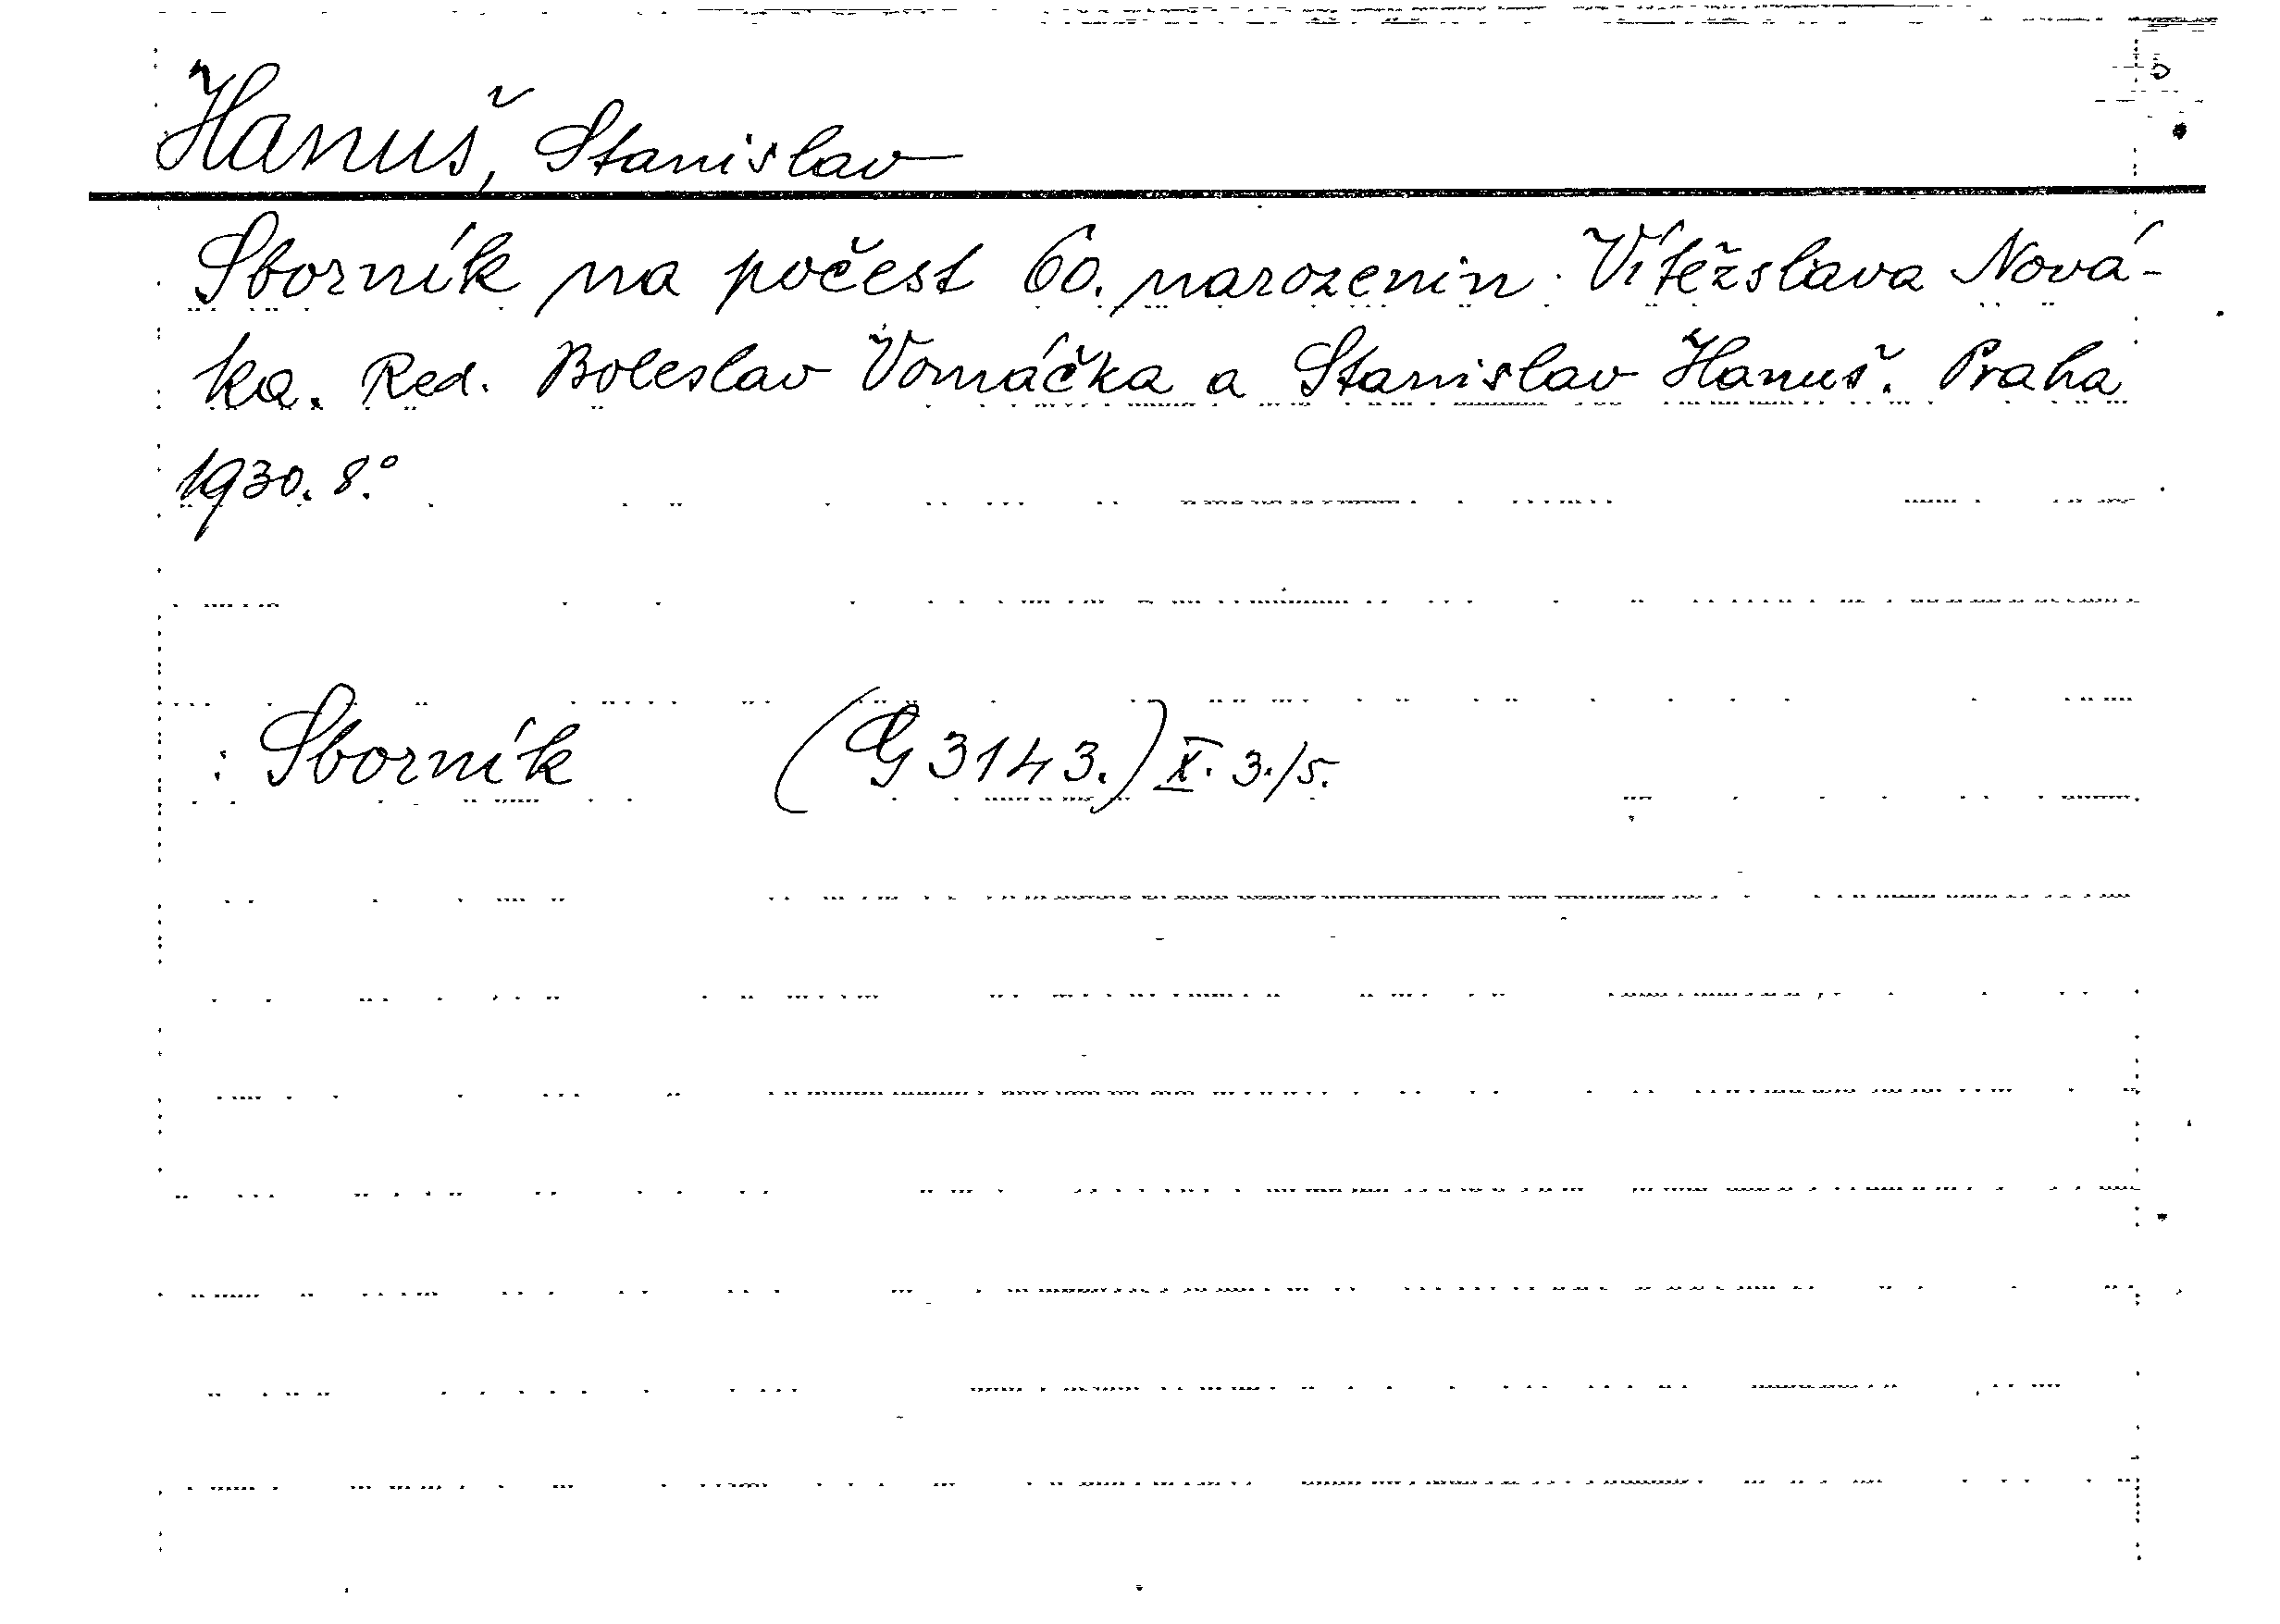 Hanuš, Stanislav
Sborník na počest 60. narozenin Vítěžslava Nová-
ka. Red. Boleslav Vomáčka a Stanislav Hanuš. Praha
1930. 8.°
: Sborník (G 3143.) X. 3./5.